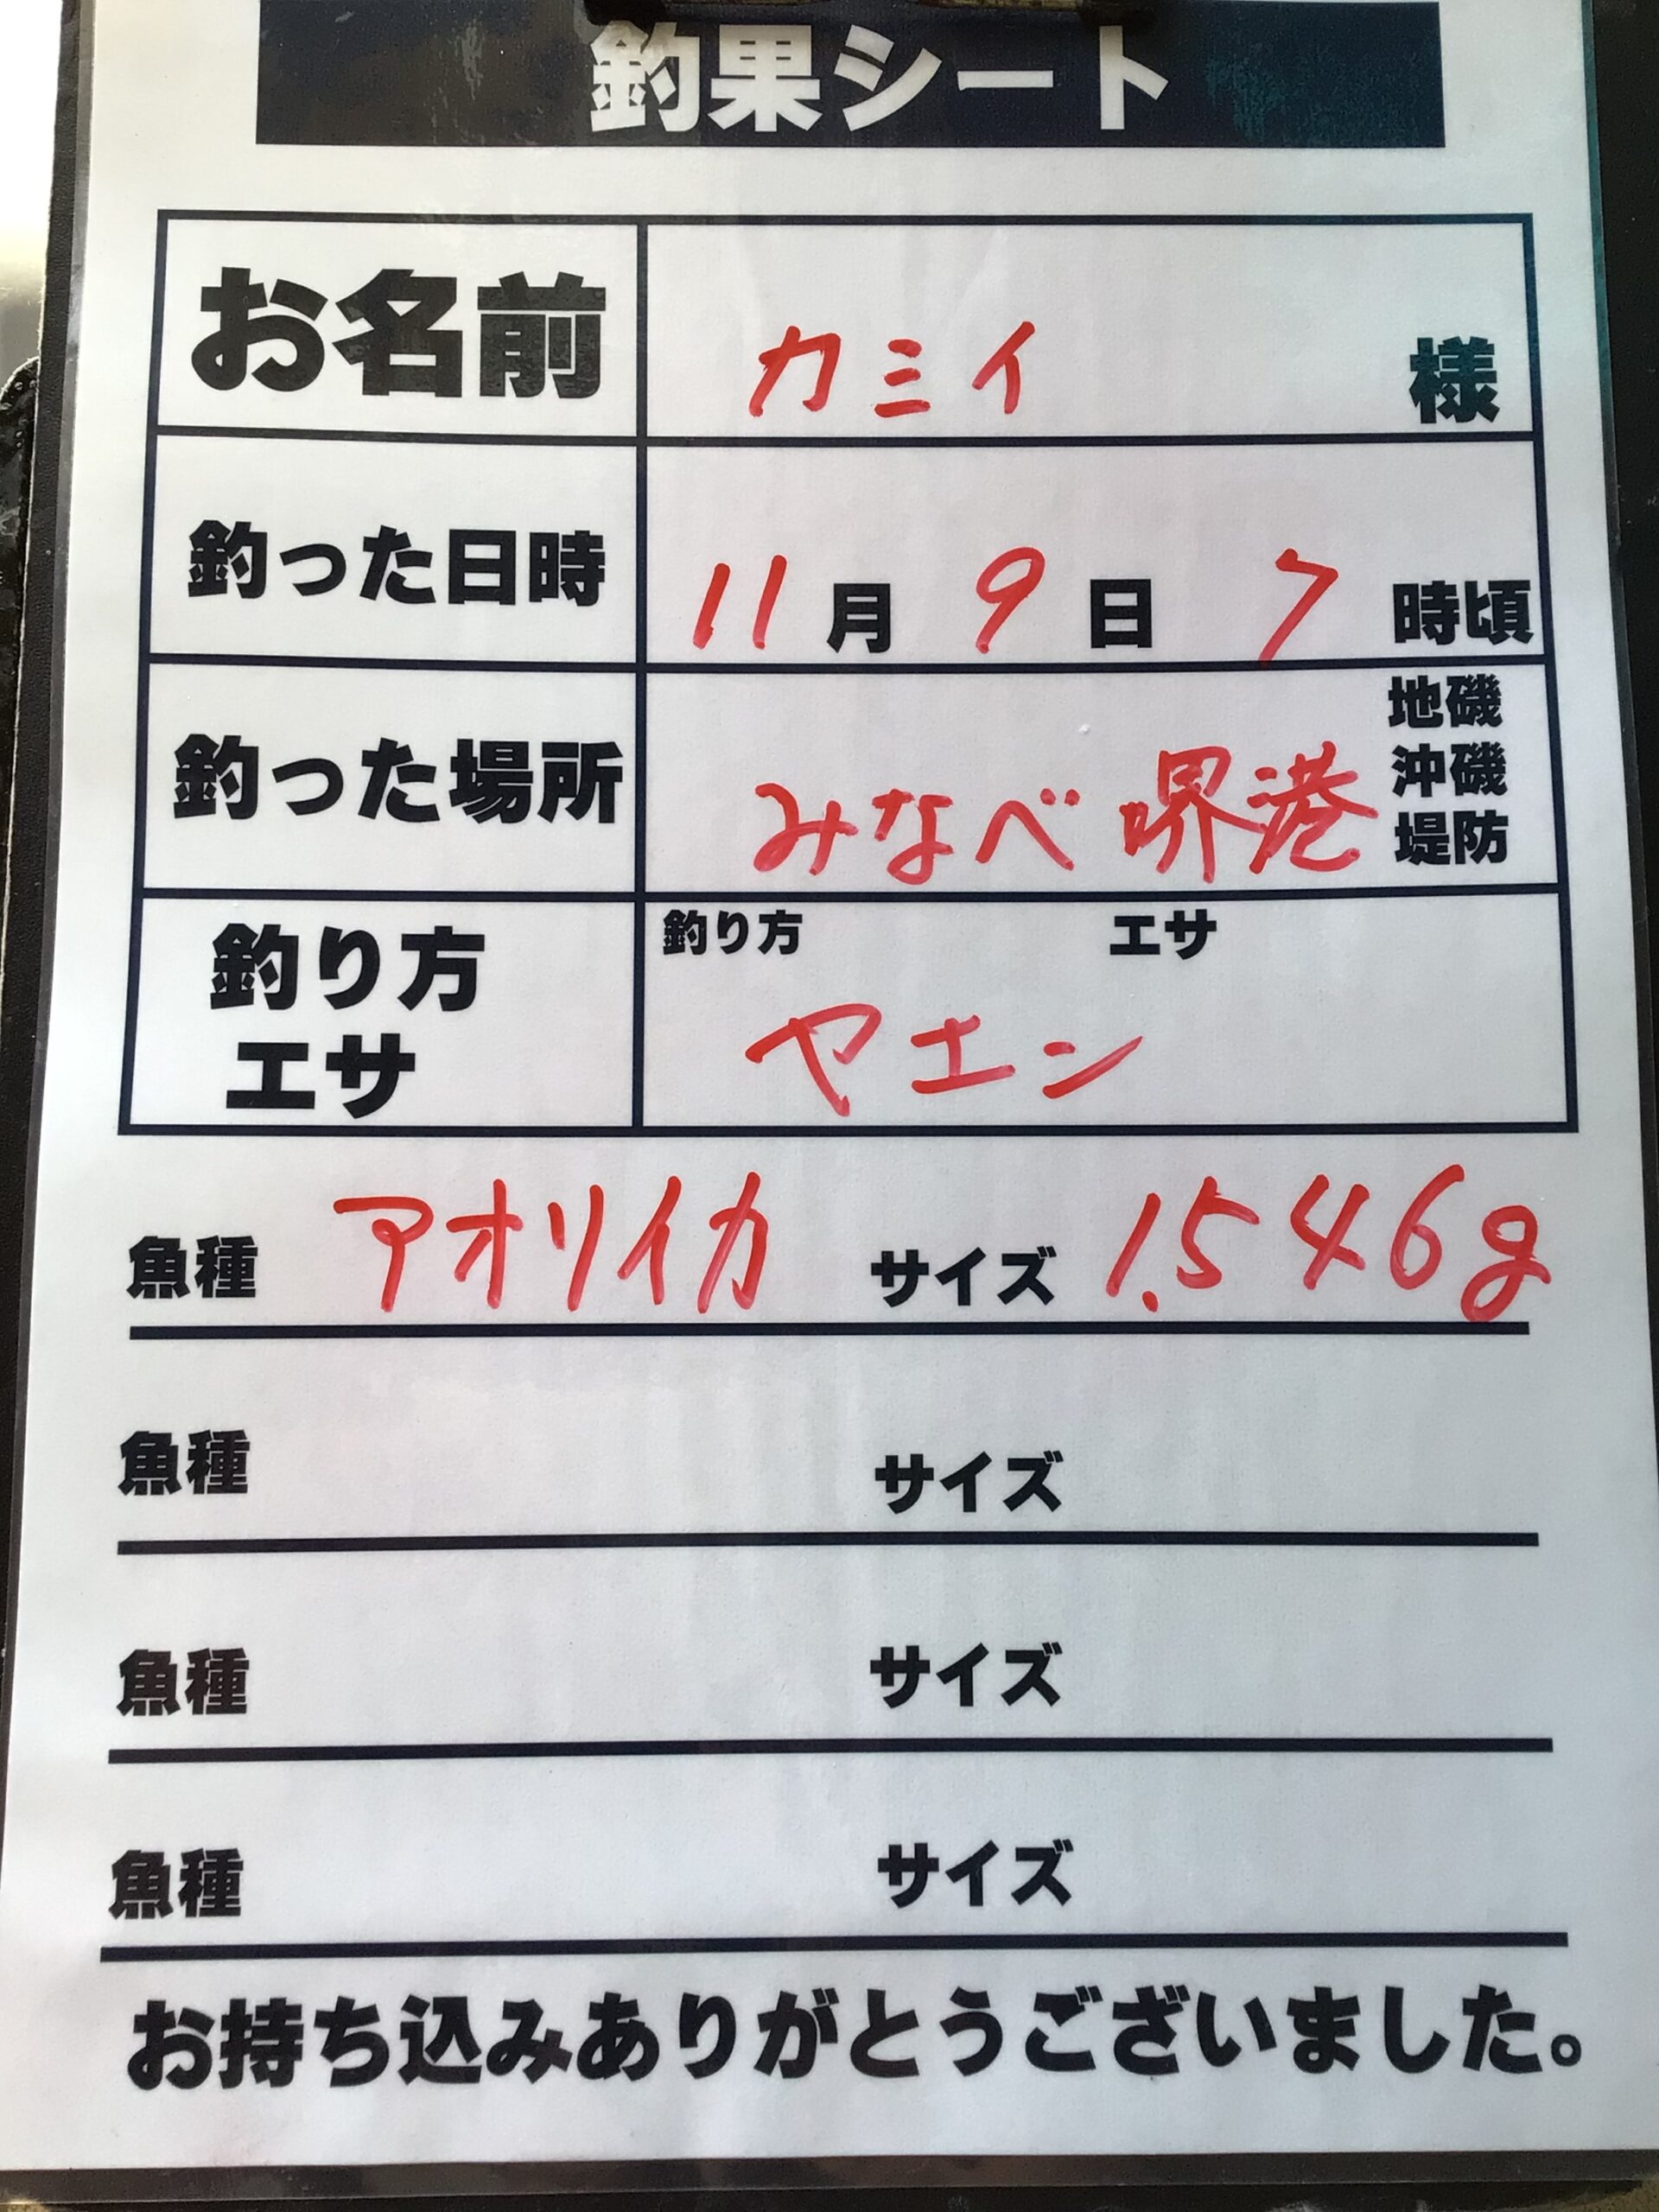 釣果シート
お名前 カミイ 様
釣った日時 11月 9日 7時頃
釣った場所 みなべ堺港 地磯 沖磯 堤防
釣り方 エサ 釣り方 エサ
ヤエン
魚種 アオリイカ サイズ 1.546g
魚種 サイズ
魚種 サイズ
魚種 サイズ
お持ち込みありがとうございました。